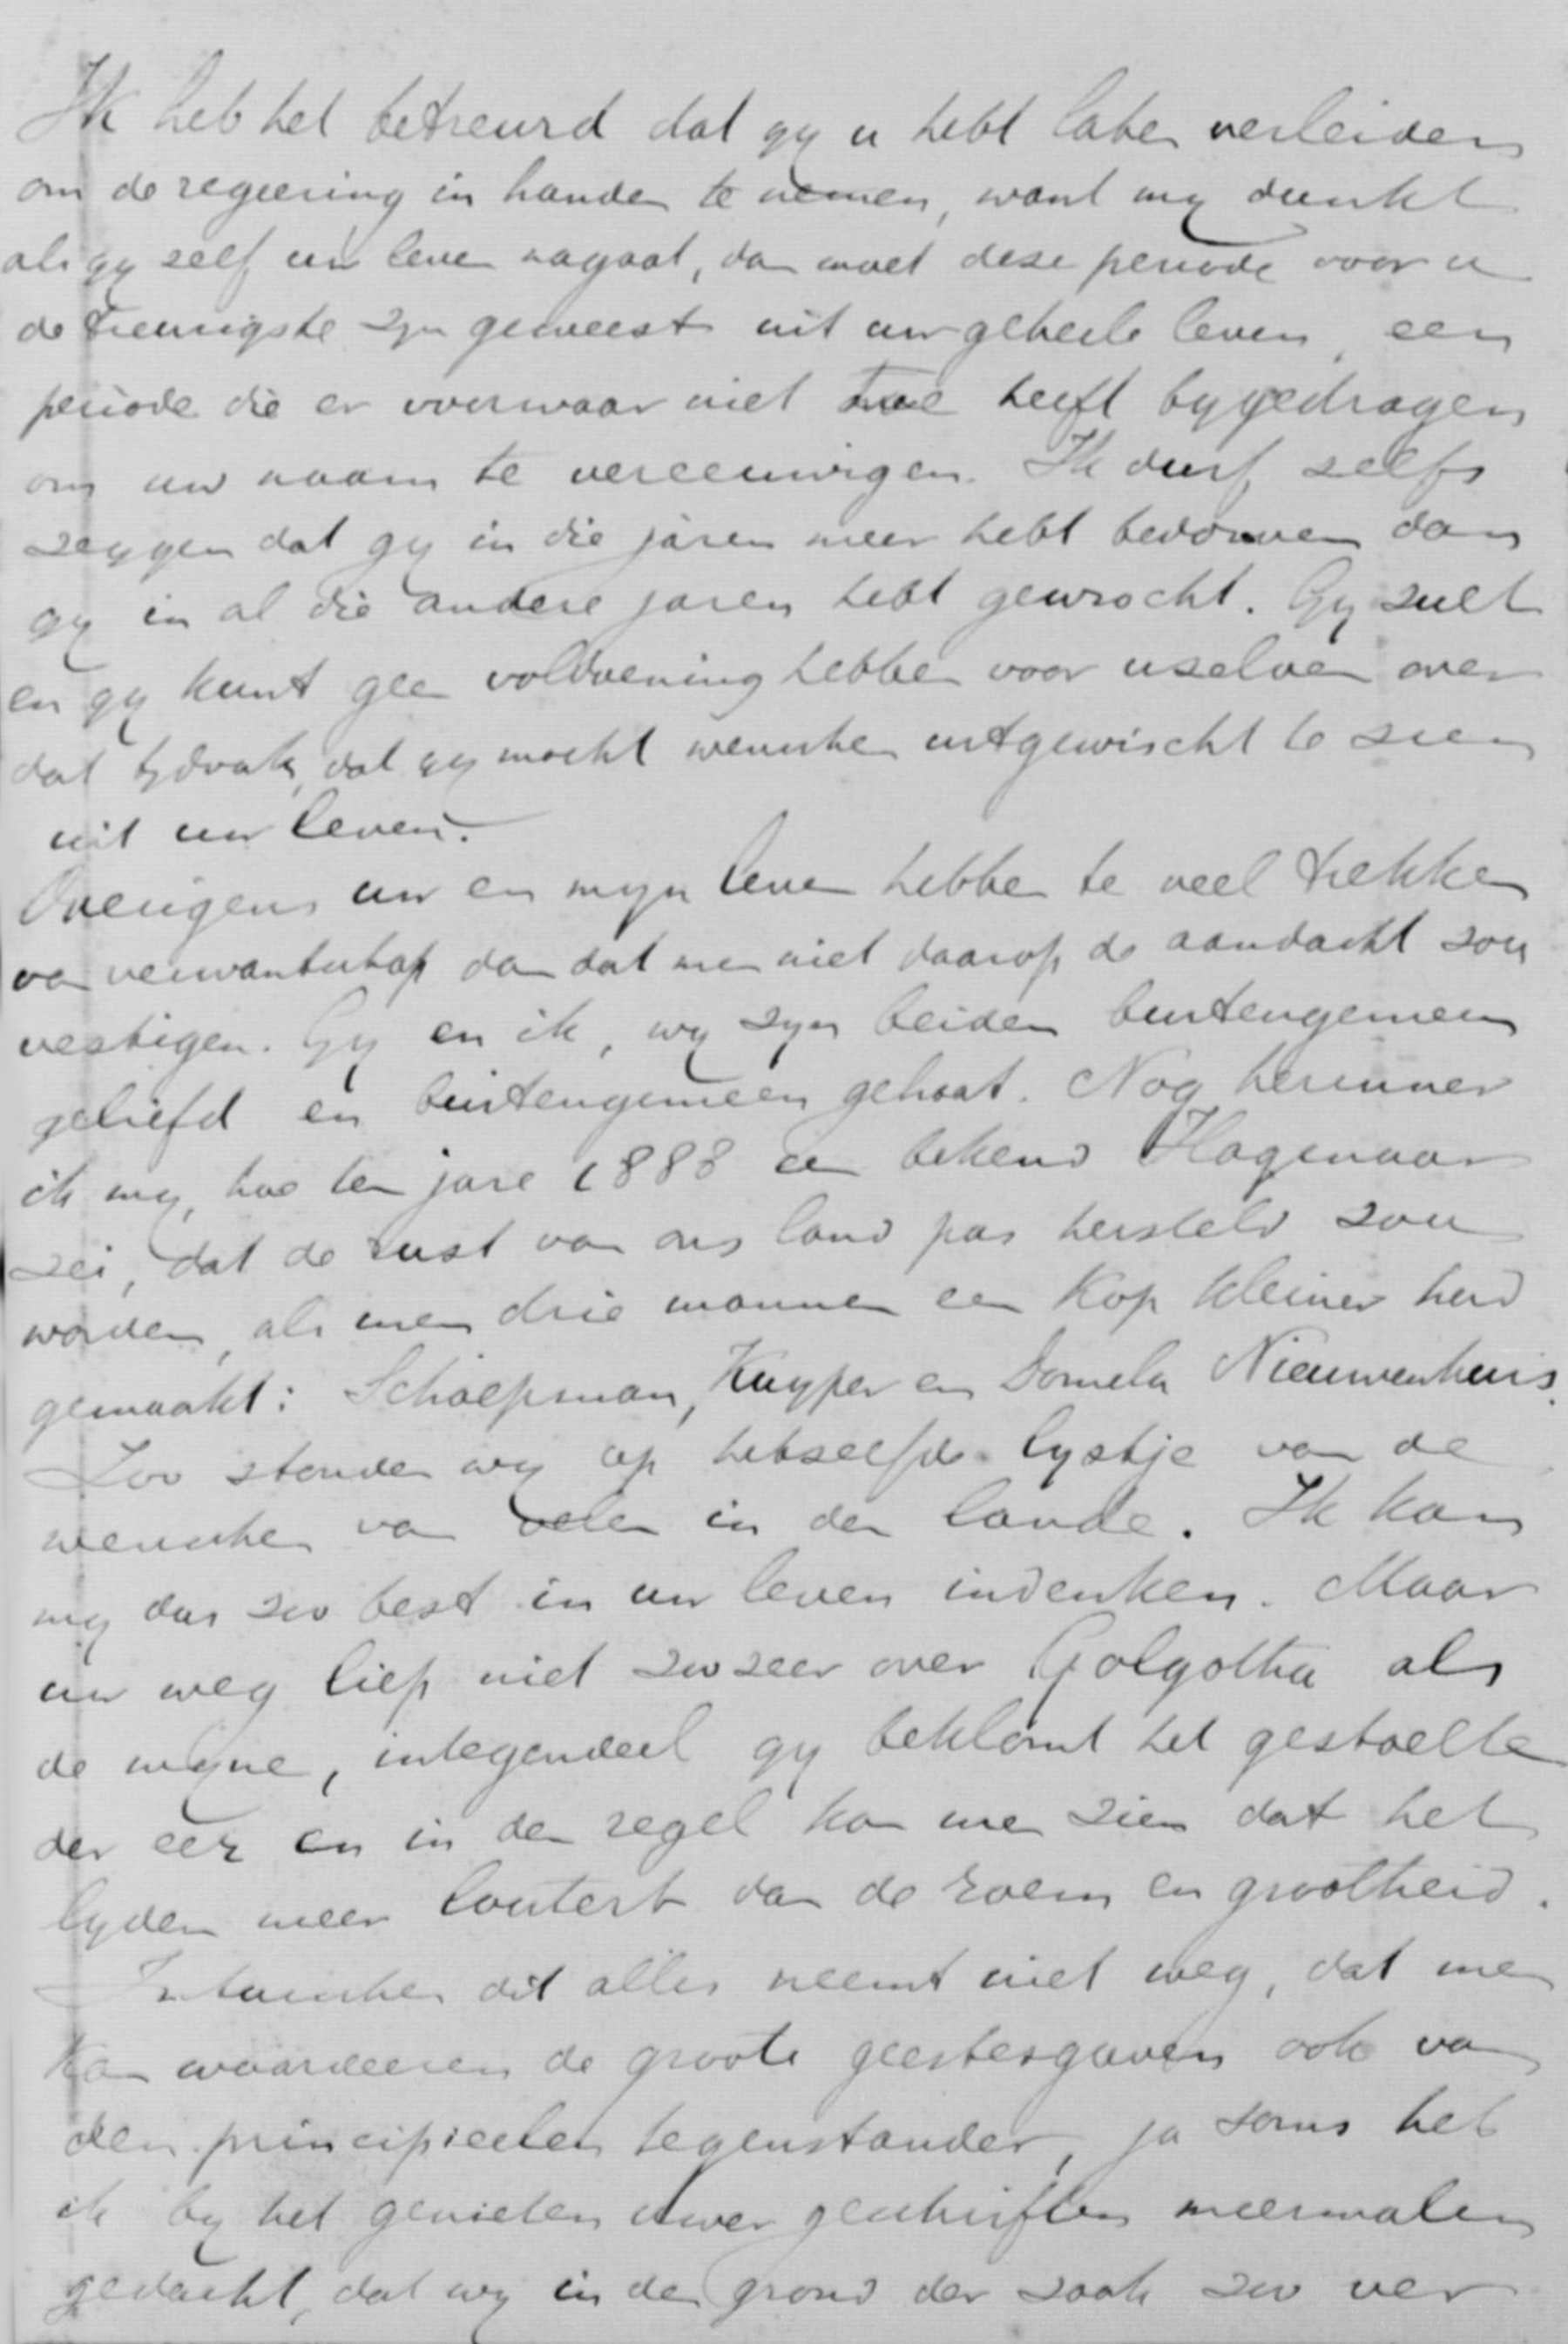 Ik heb het betreurd dat gy u hebt laten verleiden
om de regeering in handen te nemen, want my dunkt
als gy self uw leven nagaat, dan moet dese periode voor u
de treurigste zyn geweest uit uw geheele leven, een
periode die er voorwaar niet toe heeft bygedragen
om uw naam te vereeuwigen. Ik durf selfs
seggen dat gy in die jaren meer hebt bedorven dan
gy in al die andere jaren hebt gewrocht. Gy sult
en gy kunt geen voldoening hebben voor uselven over
dat tydvak, dat gy mocht wenschen uitgewischt te sien
uit uw leven.
Overigens uw en myn leven hebben te veel trekken
van verwantschap dan dat men niet daarop de aandacht sou
vestigen. Gy en ik, wy syn beiden buitengemeen
geliefd en buitengemeen gehaat. Nog herinner
ik my, hoe ten jare 1888 een bekend Hagenaar
sei, dat de rust van ons land pas hersteld sou
worden, als men drie mannen een kop kleiner had
gemaakt: Schaepman, Kuyper en Domela Nieuwenhuis.
Soo stonden wy op hetselfde lystje van de
wenschen van velen in den lande. Ik kan
my dus soo best in uw leven indenken. Maar
uw weg liep niet soo seer over Golgotha als
de myne, integendeel gy beklomt het gestoelte
der eer en in den regel kan men sien dat het
lyden meer loutert dan de roem en grootheid.
Intusschen dit alles neemt niet weg, dat men
kan waardeeren de groote geestesgaven ook van
den principieelen tegenstander, ja soms heb
ik by het genieten uwer geschriften meermalen
gedacht, dat wy in den grond der saak soo ver